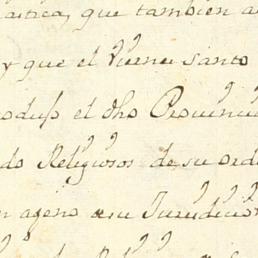 astica, que tambien a
y que el Viene santo
odujo el dho Provinci
do Religiosos de su orde
n ageno a su Jurisdicion